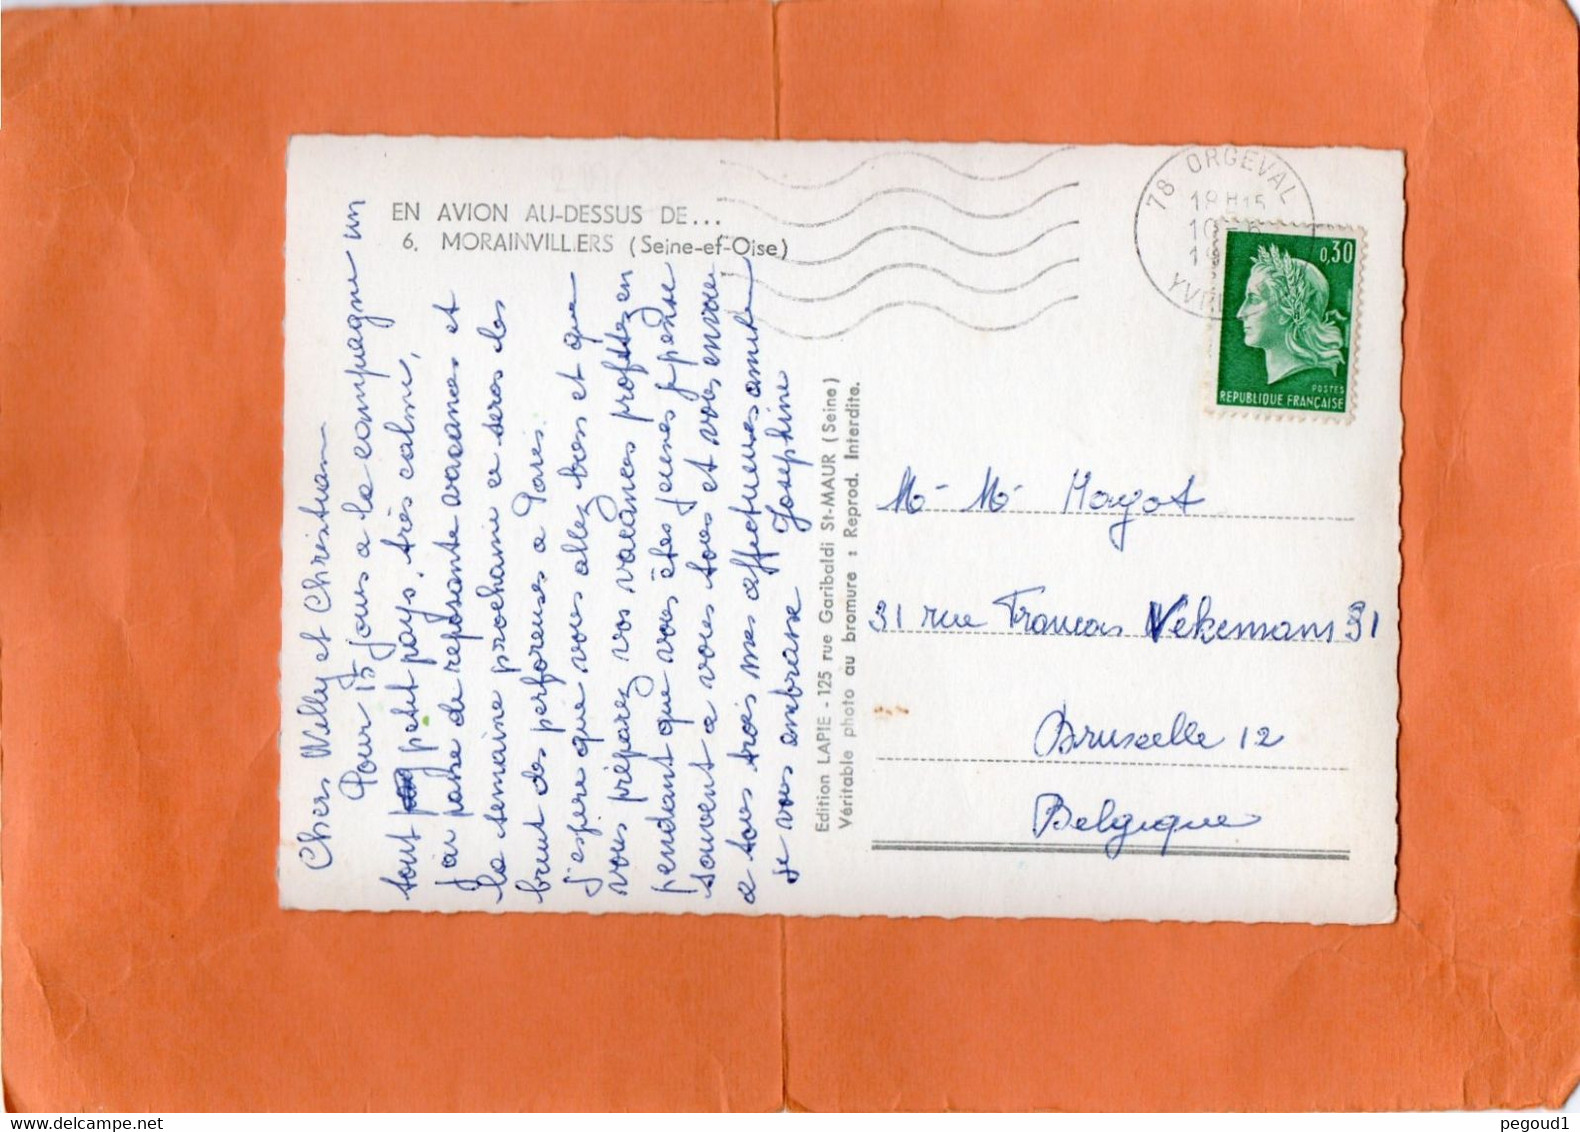 EN AVION AU-DESSUS DE...
6. MORAINVILLIERS (Seine-et-Oise)
Chers Willy et Christian
Pour 15 jours a la compagne un
tout petit pays, très calme,
j'ai pahe de reposante vacances et
la semaine prochaine ce seras les
bruit des perforeuses a Paris.
j'espere que vous allez bien et que
vous préparez vos vacances profitez en
pendant que vous êtes jeunes, je pense
souvent a vous tous et vous envoie
a tous trois mes affectueuses amitiés
je vous embrasse Josephine
Edition LAPIE - 125 rue Garibaldi St-MAUR (Seine)
Véritable photo au bromure : Reprod. Interdite.
78 ORGEVAL
18H15
YV
0,30
POSTES
REPUBLIQUE FRANÇAISE
Mr Mr Hayot
31 rue Francois Vekemans 31
Bruxelle 12
Belgique
pegoud1